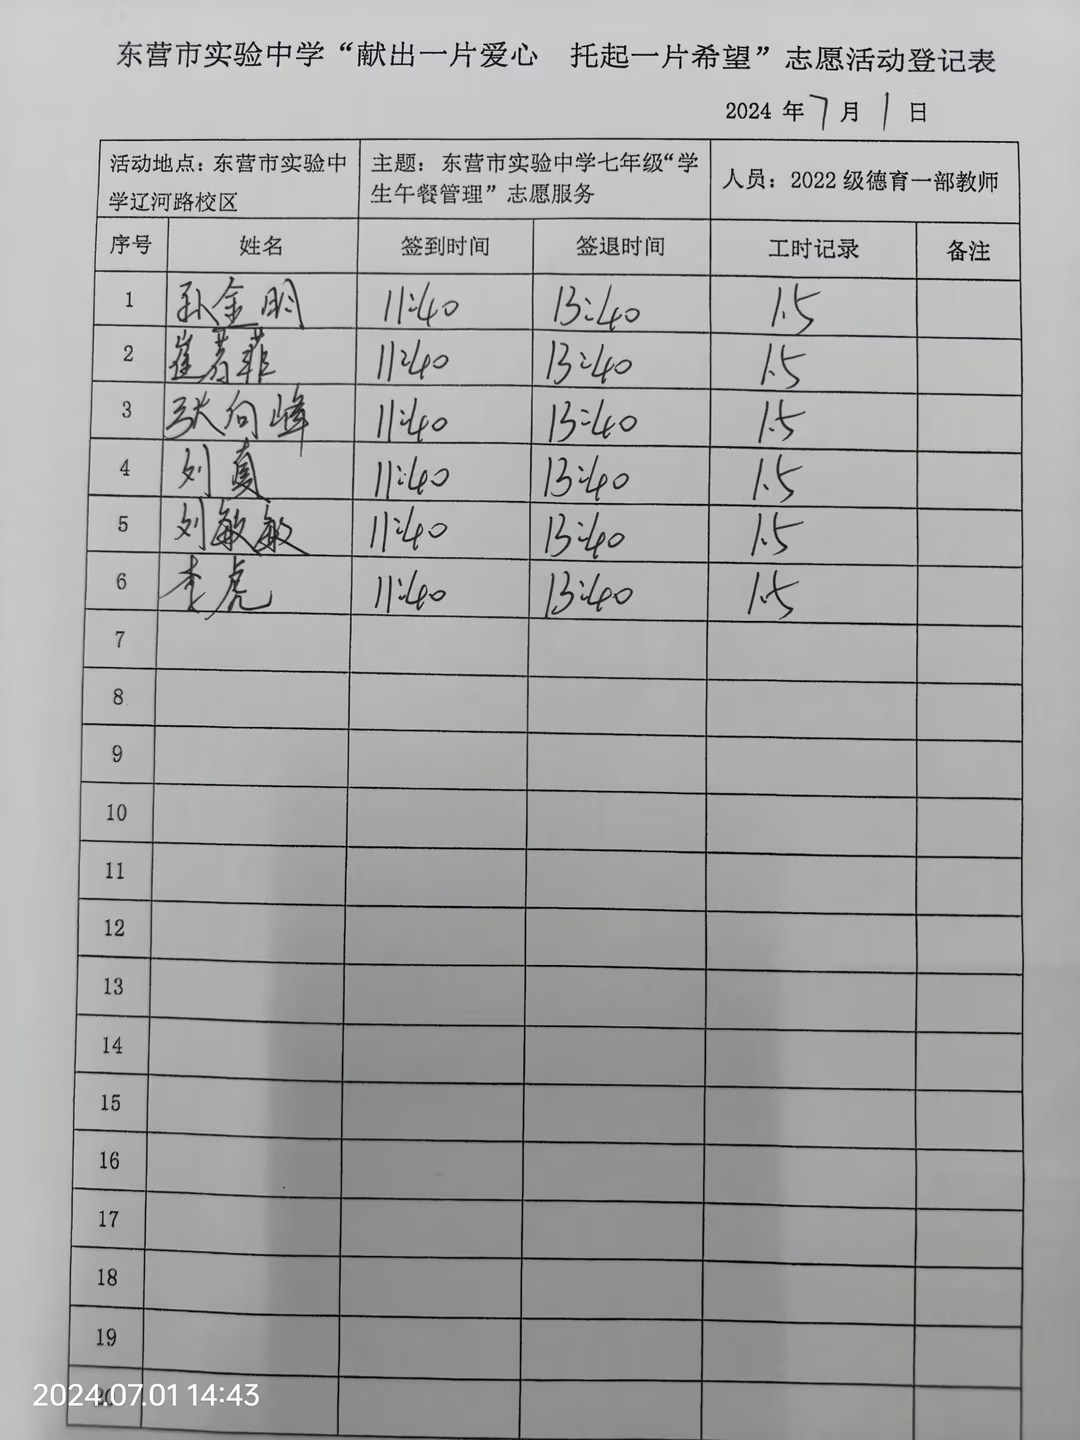 东营市实验中学“献出一片爱心 托起一片希望”志愿活动登记表
2024 年 7 月 1 日
活动地点：东营市实验中
学辽河路校区
主题：东营市实验中学七年级“学
生午餐管理”志愿服务
人员：2022 级德育一部教师
序号 姓名 签到时间 签退时间 工时记录 备注
1 孙金明 11:40 13:40 1.5
2 崔菁菲 11:40 13:40 1.5
3 张向峰 11:40 13:40 1.5
4 刘真 11:40 13:40 1.5
5 刘敏敏 11:40 13:40 1.5
6 李虎 11:40 13:40 1.5
7
8
9
10
11
12
13
14
15
16
17
18
19
20
2024.07.01 14:43